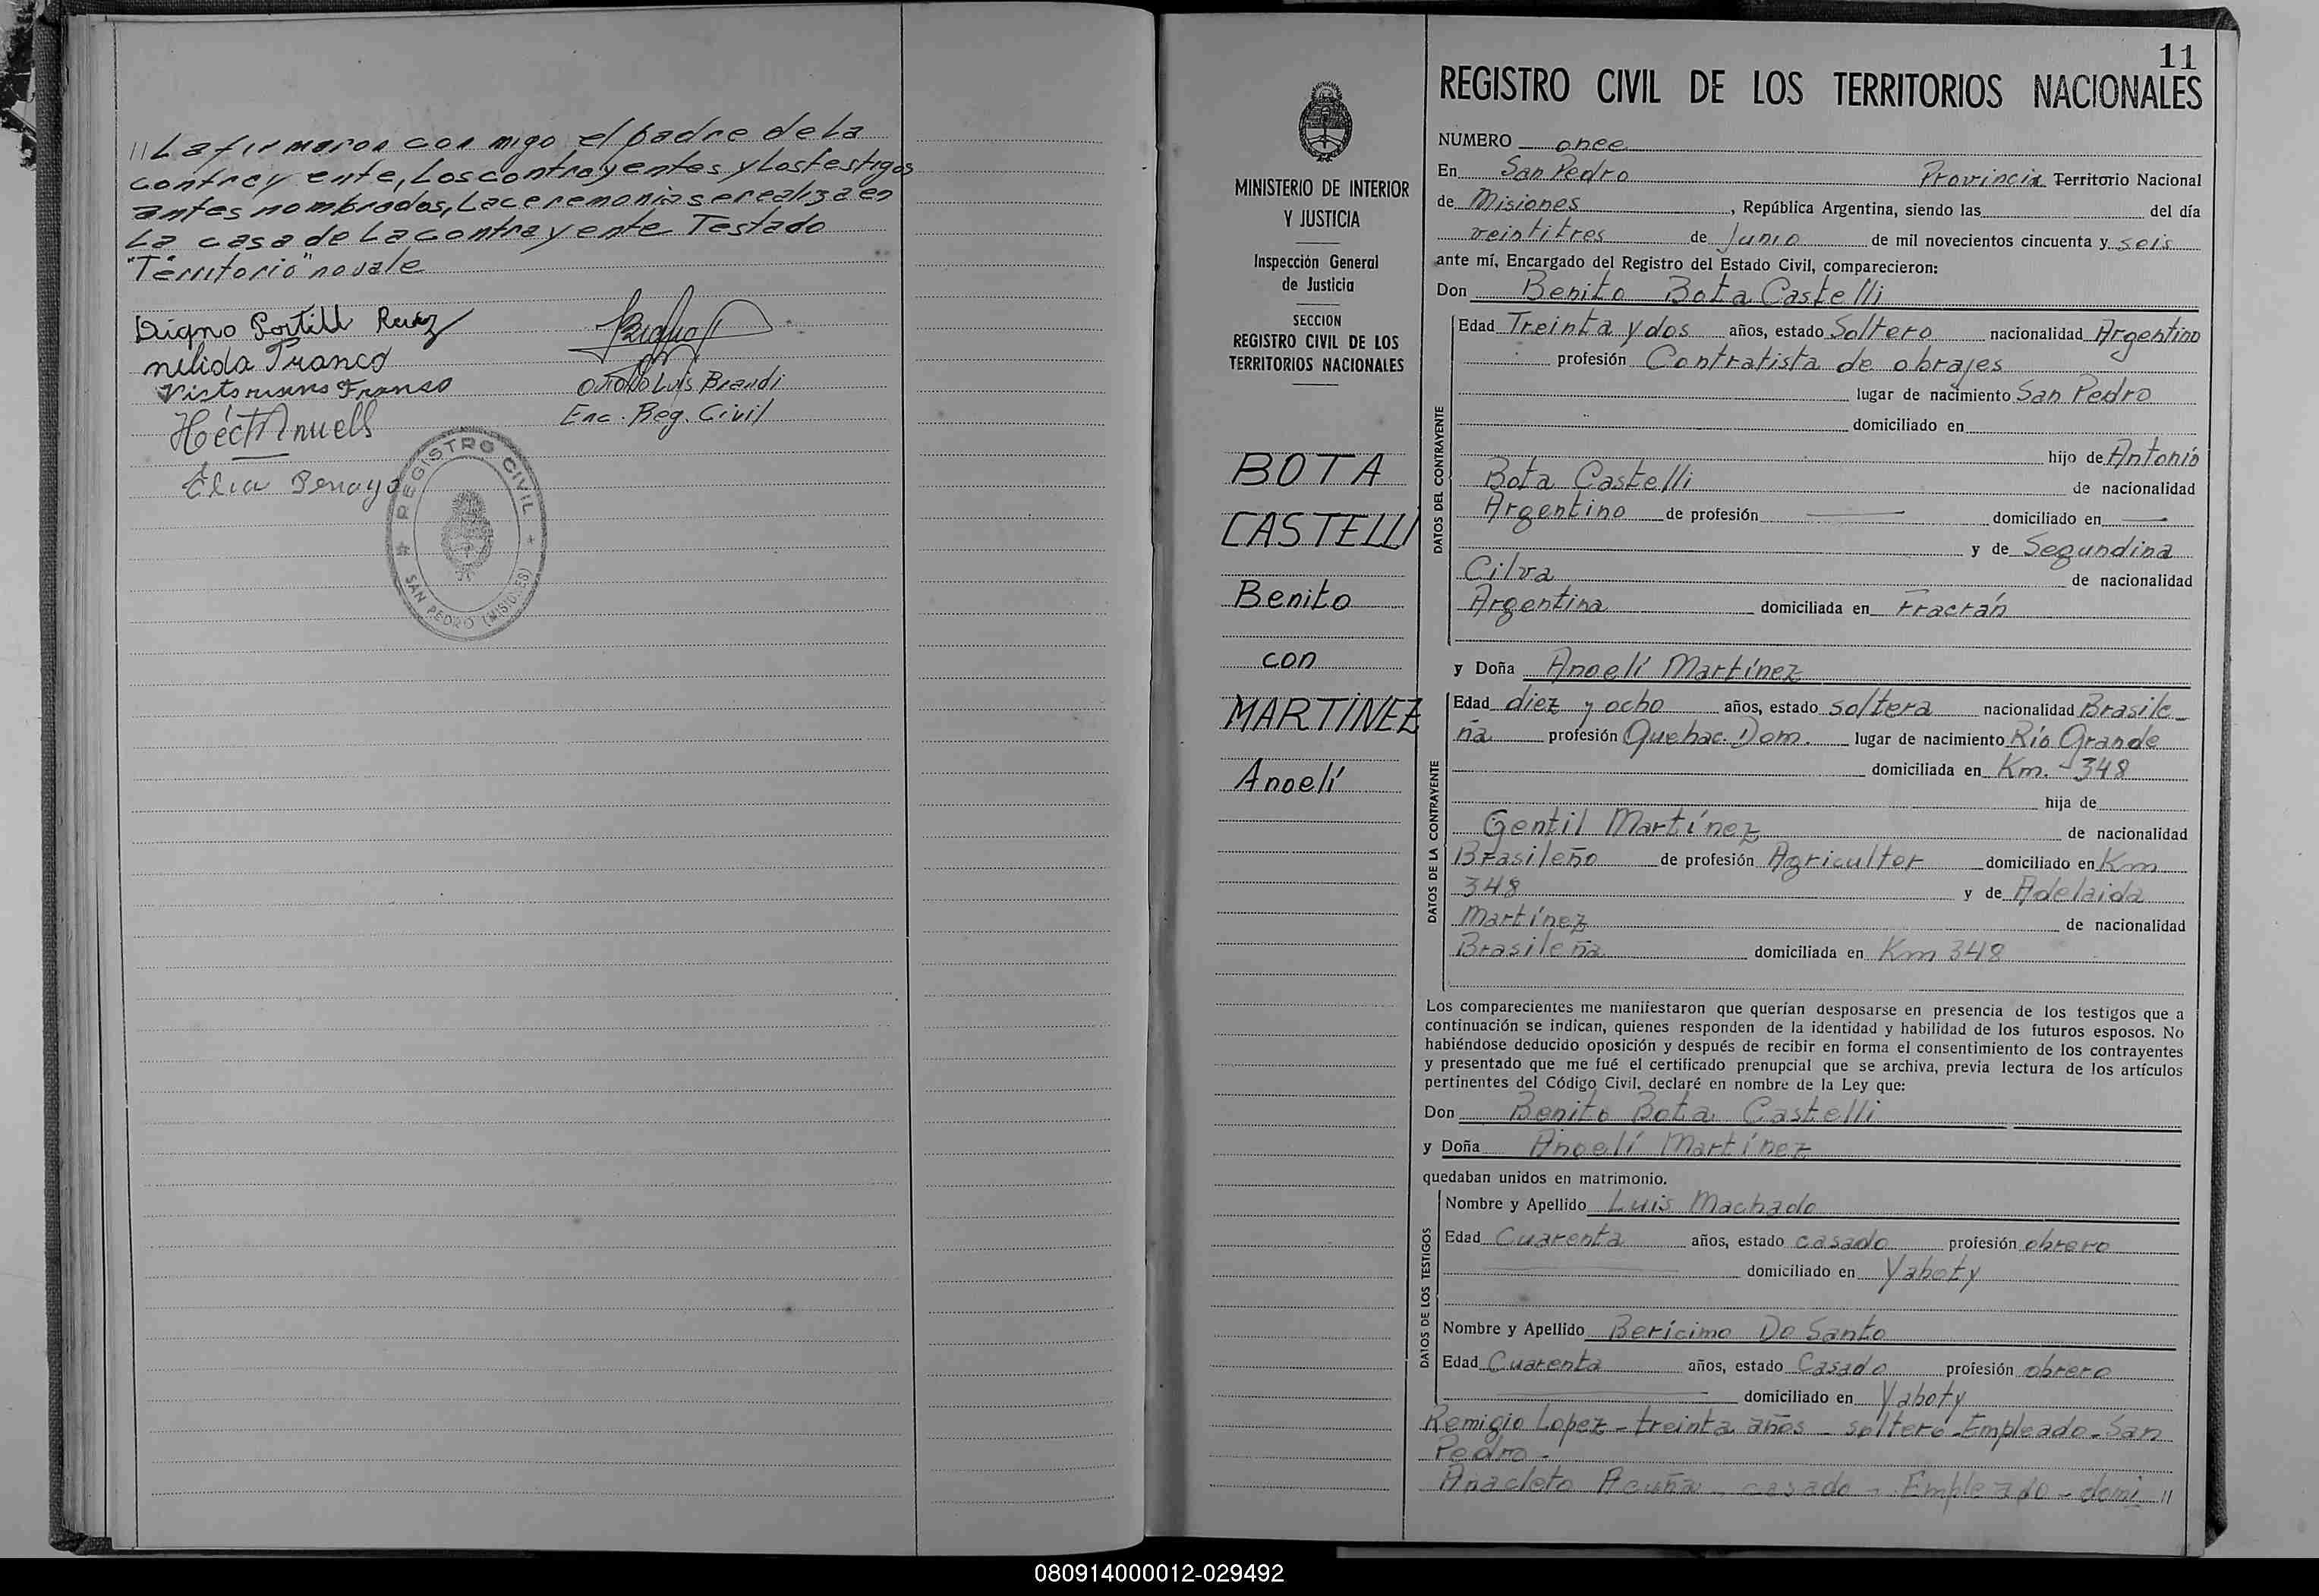 // La firmaron con migo el padre de la
contrayente, Los contrayentes y Los testigos
antes nombrados, La ceremonia se realiza en
La casa de La contrayente Testado
"Territorio" no vale
Digno Portill
Nelida Franco
Victoriano Franco
Otto Luis Brandi
Enc. Reg. Civil
Elia
REGISTRO CIVIL
SAN PEDRO (MISIONES)
11
MINISTERIO DE INTERIOR
Y JUSTICIA
Inspección General
de Justicia
SECCION
REGISTRO CIVIL DE LOS
TERRITORIOS NACIONALES
BOTA
CASTELLI
Benito
con
MARTINEZ
Anoelí
REGISTRO CIVIL DE LOS TERRITORIOS NACIONALES
NUMERO once
En San Pedro Provincia Territorio Nacional
de Misiones, República Argentina, siendo las del día
veintitres de Junio de mil novecientos cincuenta y seis
ante mí, Encargado del Registro del Estado Civil, comparecieron:
Don Benito Bota Castelli
DATOS DEL CONTRAYENTE
Edad Treinta y dos años, estado Soltero nacionalidad Argentino
profesión Contratista de obrajes
lugar de nacimiento San Pedro
domiciliado en
hijo de Antonio
Bota Castelli de nacionalidad
Argentino de profesión — domiciliado en —
y de Segundina
Cilva de nacionalidad
Argentina domiciliada en Fracrán
y Doña Anoelí Martínez
DATOS DE LA CONTRAYENTE
Edad diez y ocho años, estado soltera nacionalidad Brasile-
ña profesión Quehac. Dom. lugar de nacimiento Río Grande
domiciliada en Km. 348
hija de
Gentil Martínez de nacionalidad
Brasileño de profesión Agricultor domiciliado en Km
348 y de Adelaida
Martínez de nacionalidad
Brasileña domiciliada en Km 348
Los comparecientes me manifestaron que querían desposarse en presencia de los testigos que a
continuación se indican, quienes responden de la identidad y habilidad de los futuros esposos. No
habiéndose deducido oposición y después de recibir en forma el consentimiento de los contrayentes
y presentado que me fué el certificado prenupcial que se archiva, previa lectura de los artículos
pertinentes del Código Civil, declaré en nombre de la Ley que:
Don Benito Bota Castelli
y Doña Anoelí Martínez
quedaban unidos en matrimonio.
DATOS DE LOS TESTIGOS
Nombre y Apellido Luis Machado
Edad Cuarenta años, estado casado profesión obrero
domiciliado en Yaboty
Nombre y Apellido Berícimo Do Santo
Edad Cuarenta años, estado Casado profesión obrero
domiciliado en Yaboty
Remigio Lopez - treinta años - soltero - Empleado - San
Pedro -
Anacleto Acuña - casado - Empleado - domi //
080914000012-029492